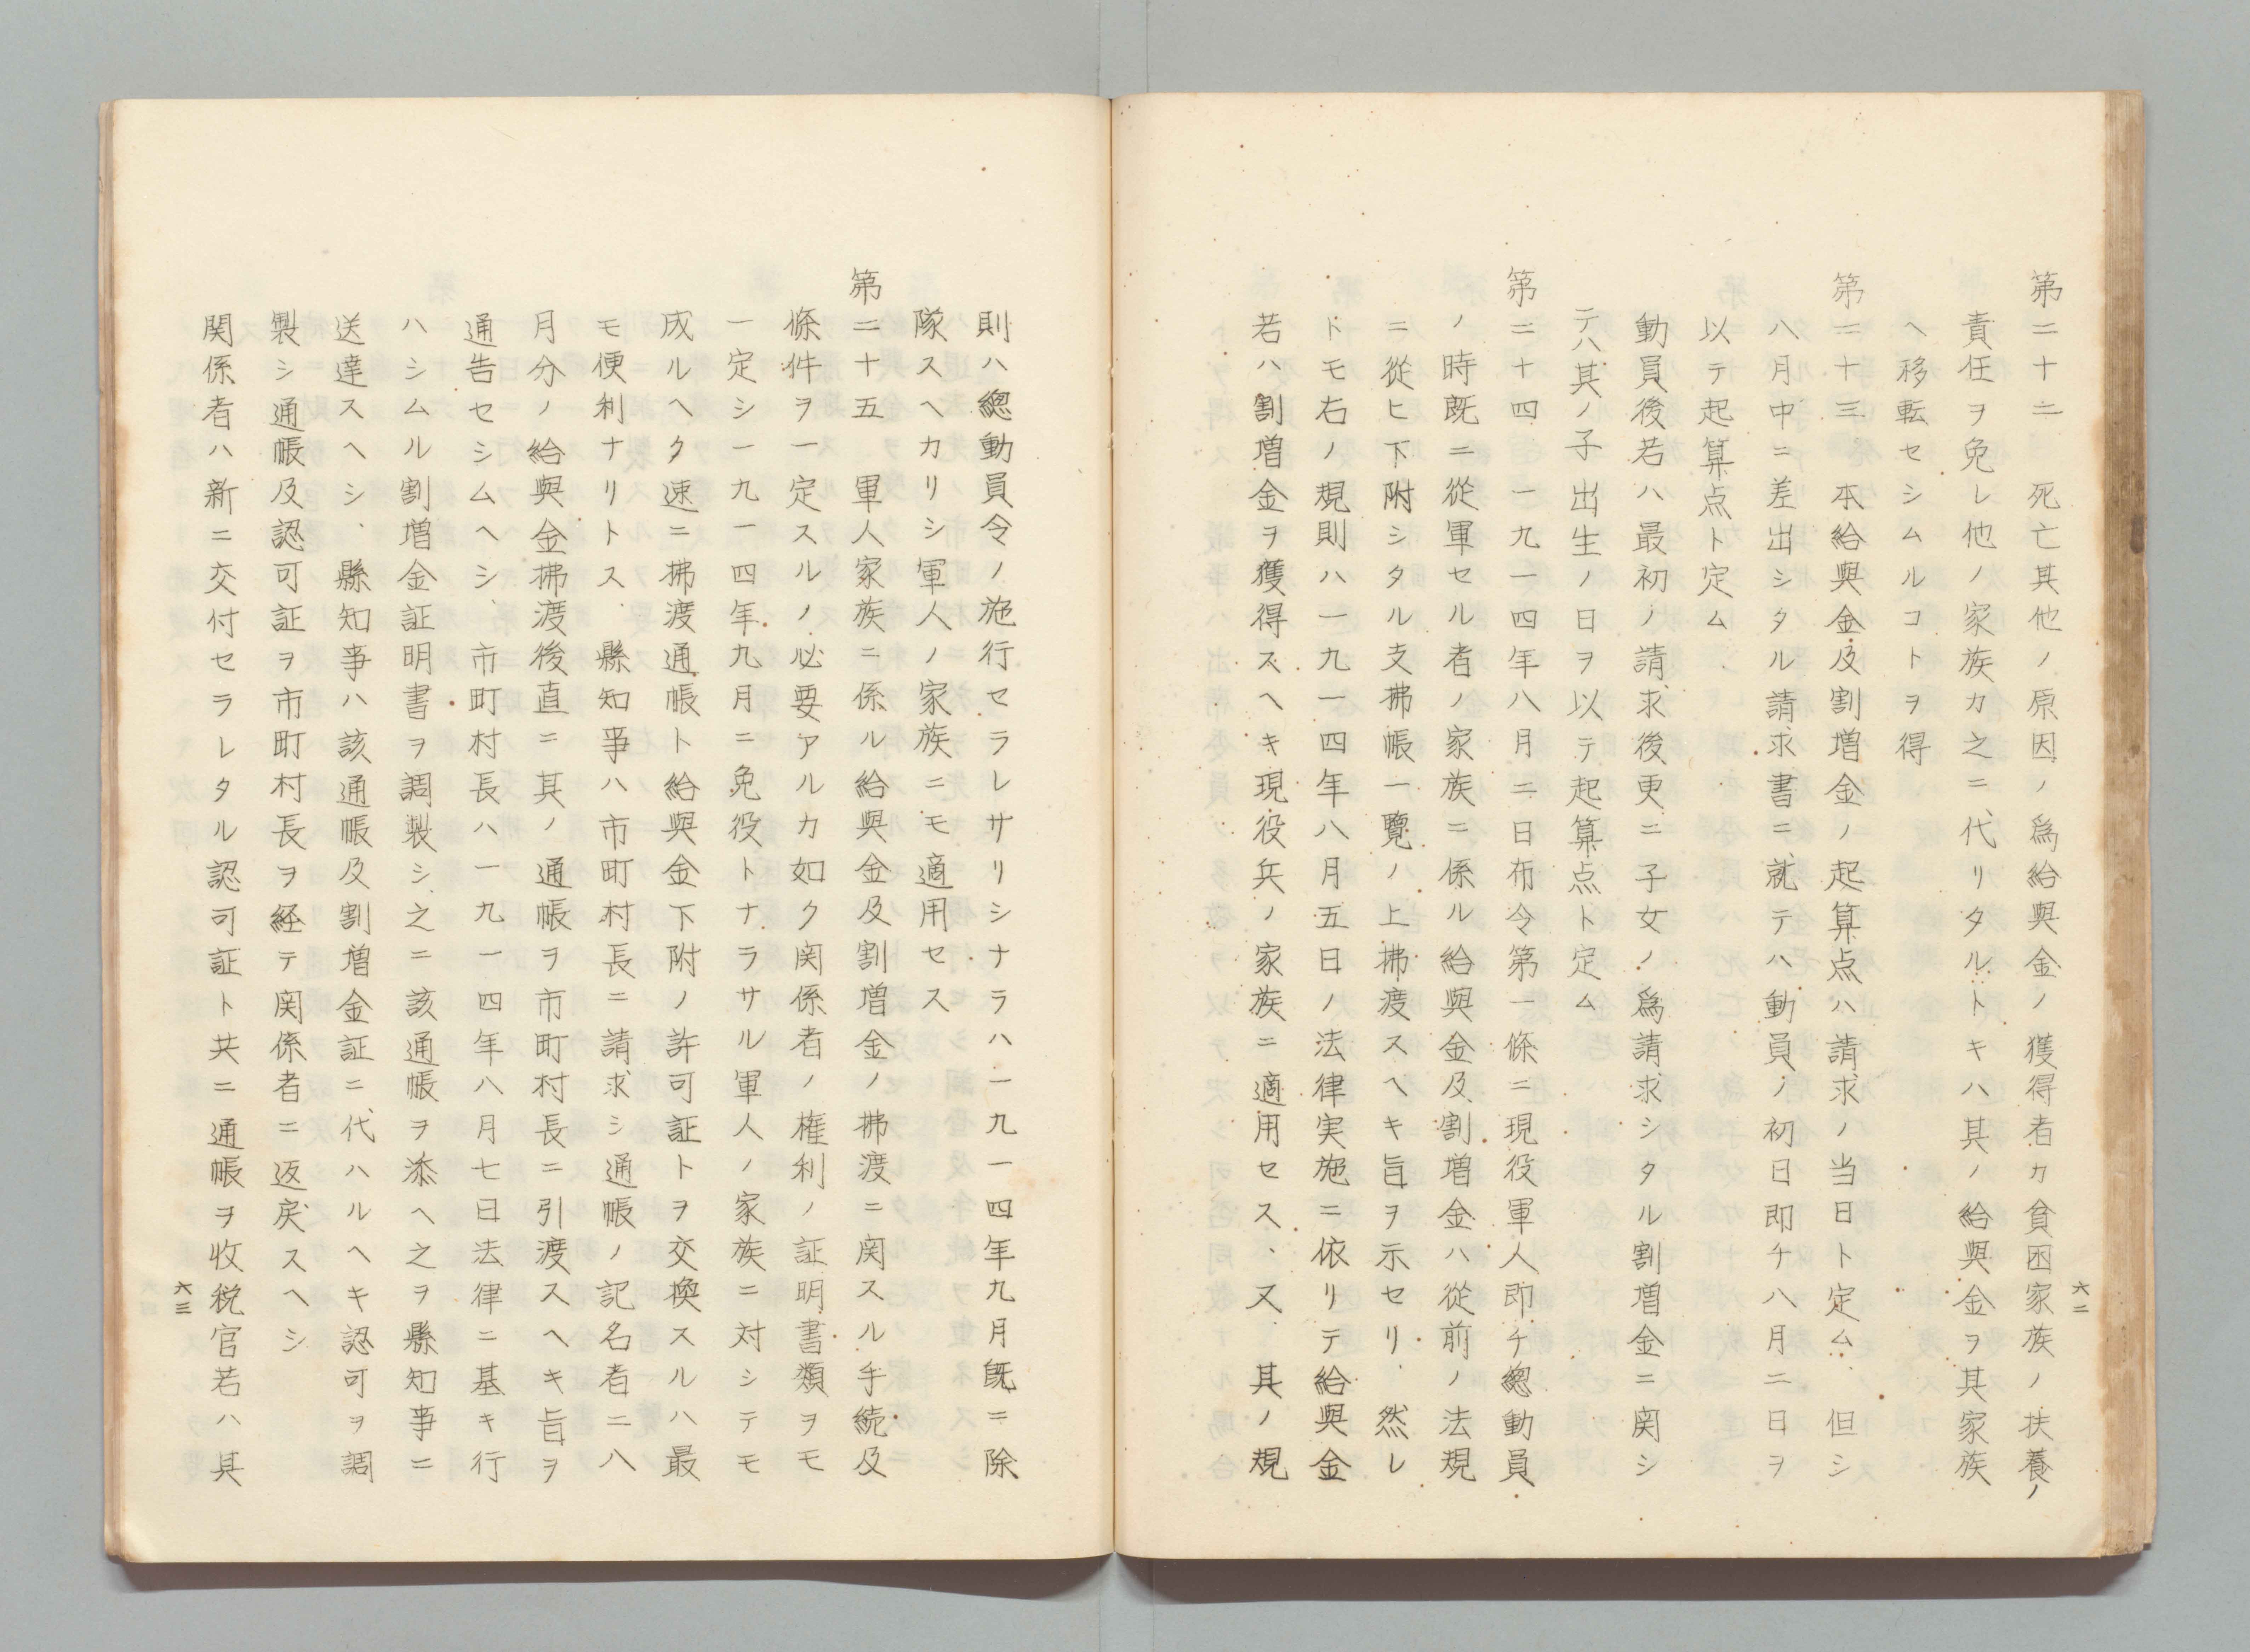 六二
第二十二　死亡其他ノ原因ノ爲給與金ノ獲得者カ貧困家族ノ扶養ノ
責任ヲ免レ他ノ家族カ之ニ代リタルトキハ其ノ給與金ヲ其家族
ヘ移転セシムルコトヲ得
第二十三　本給與金及割増金ノ起算点ハ請求ノ当日ト定ム、但シ
八月中ニ差出シタル請求書ニ就テハ動員ノ初日即チ八月二日ヲ
以テ起算点ト定ム
動員後若ハ最初ノ請求後更ニ子女ノ爲請求シタル割増金ニ関シ
テハ其ノ子出生ノ日ヲ以テ起算点ト定ム
第二十四　一九一四年八月二日布令第一條ニ現役軍人即チ總動員
ノ時既ニ從軍セル者ノ家族ニ係ル給與金及割増金ハ從前ノ法規
ニ從ヒ下附シタル支拂帳一覽ノ上拂渡スヘキ旨ヲ示セリ、然レ
トモ右ノ規則ハ一九一四年八月五日ノ法律実施ニ依リテ給與金
若ハ割増金ヲ獲得スヘキ現役兵ノ家族ニ適用セス、又其ノ規
則ハ總動員令ノ施行セラレサリシナラハ一九一四年九月既ニ除
隊スヘカリシ軍人ノ家族ニモ適用セス
第二十五　軍人家族ニ係ル給與金及割増金ノ拂渡ニ関スル手続及
條件ヲ一定スルノ必要アルカ如ク関係者ノ権利ノ証明書類ヲモ
一定シ一九一四年九月ニ免役トナラサル軍人ノ家族ニ対シテモ
成ルヘク速ニ拂渡通帳ト給與金下附ノ許可証トヲ交換スルハ最
モ便利ナリトス、縣知事ハ市町村長ニ請求シ通帳ノ記名者ニ八
月分ノ給與金拂渡後直ニ其ノ通帳ヲ市町村長ニ引渡スヘキ旨ヲ
通告セシムヘシ、市町村長ハ一九一四年八月七日法律ニ基キ行
ハシムル割増金証明書ヲ調製シ之ニ該通帳ヲ添ヘ之ヲ縣知事ニ
送達スヘシ、縣知事ハ該通帳及割増金証ニ代ハルヘキ認可ヲ調
製シ通帳及認可証ヲ市町村長ヲ経テ関係者ニ返戻スヘシ
関係者ハ新ニ交付セラレタル認可証ト共ニ通帳ヲ收税官若ハ其
六三